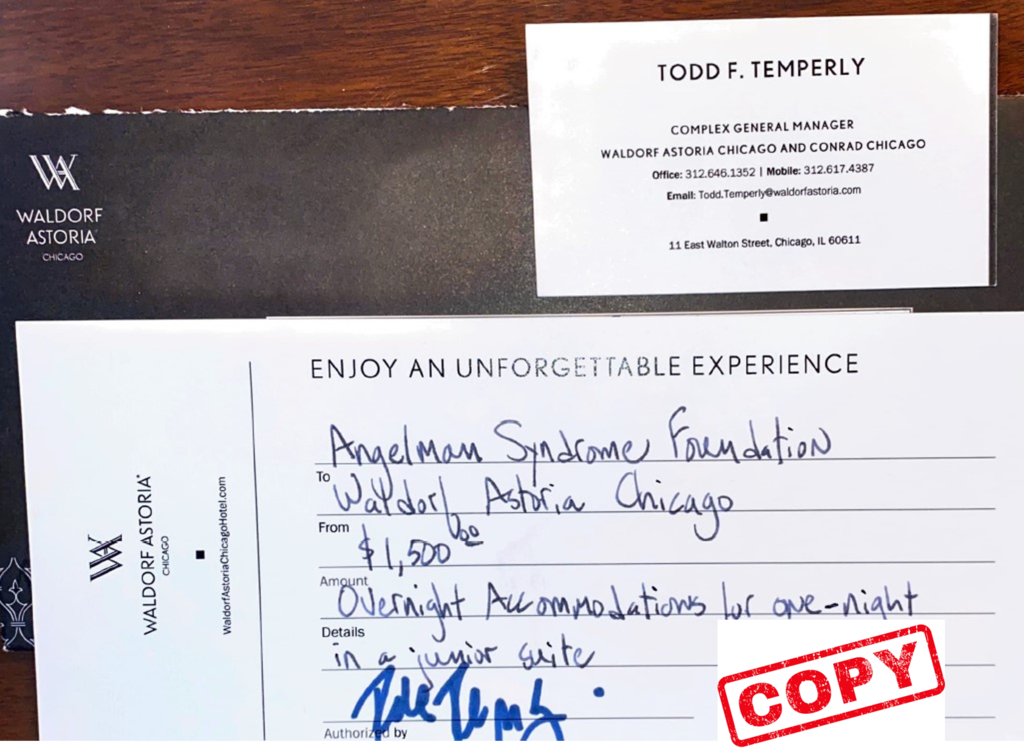 TODD F. TEMPERLY
COMPLEX GENERAL MANAGER
WALDORF ASTORIA CHICAGO AND CONRAD CHICAGO
Office: 312.646.1352 | Mobile: 312.617.4387
Email: Todd.Temperly@waldorfastoria.com
11 East Walton Street, Chicago, IL 60611
WALDORF
ASTORIA
CHICAGO
ENJOY AN UNFORGETTABLE EXPERIENCE
Angelman Syndrome Foundation
To
Waldorf Astoria Chicago
From
$1,500.00
Amount
Overnight Accommodations for one-night
Details
in a junior suite
Authorized by
WALDORF ASTORIA
CHICAGO
WaldorfAstoriaChicagoHotel.com
COPY